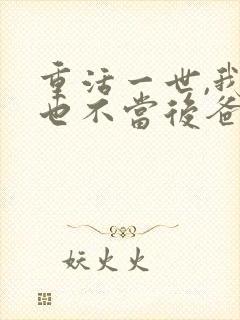 重活一世,我
也不當後爸
妖火火